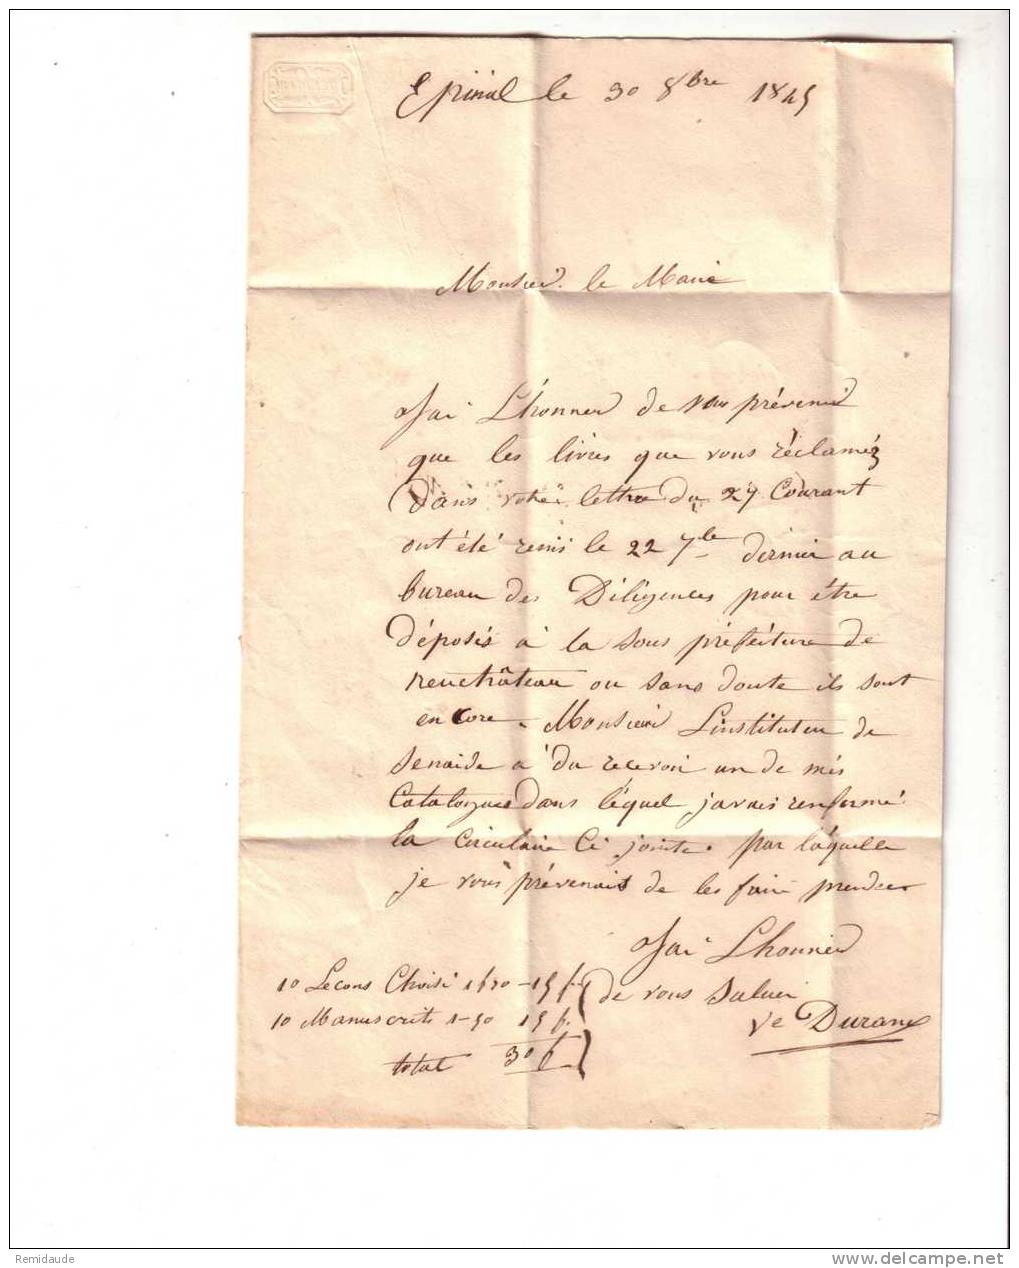 Epinal le 30 8bre 1845
Monsieur le Maire
Jai Lhonneur de vous prévenir
que les livres que vous réclaméz
Dans votre lettre du 27 Courant
ont été remis le 22 7bre dernier au
bureau des Diligences pour être
déposés à la sous préfécture de
neuchâteau ou sans doute ils sont
encore. Monsieur Linstituteur de
Senaide a du recevoir un de més
Catalogues Dans léquel javais renfermé
la circulaire Ci jointe par láquelle
je vous prévenais de les faire prendre
Jai Lhonneur
de vous Saluer
Ve Durand
10 Lecons Choisi 1f50 - 15 f.
10 Manuscrits 1-50 15 f.
total 30 f
Remidaude
www.delcampe.net